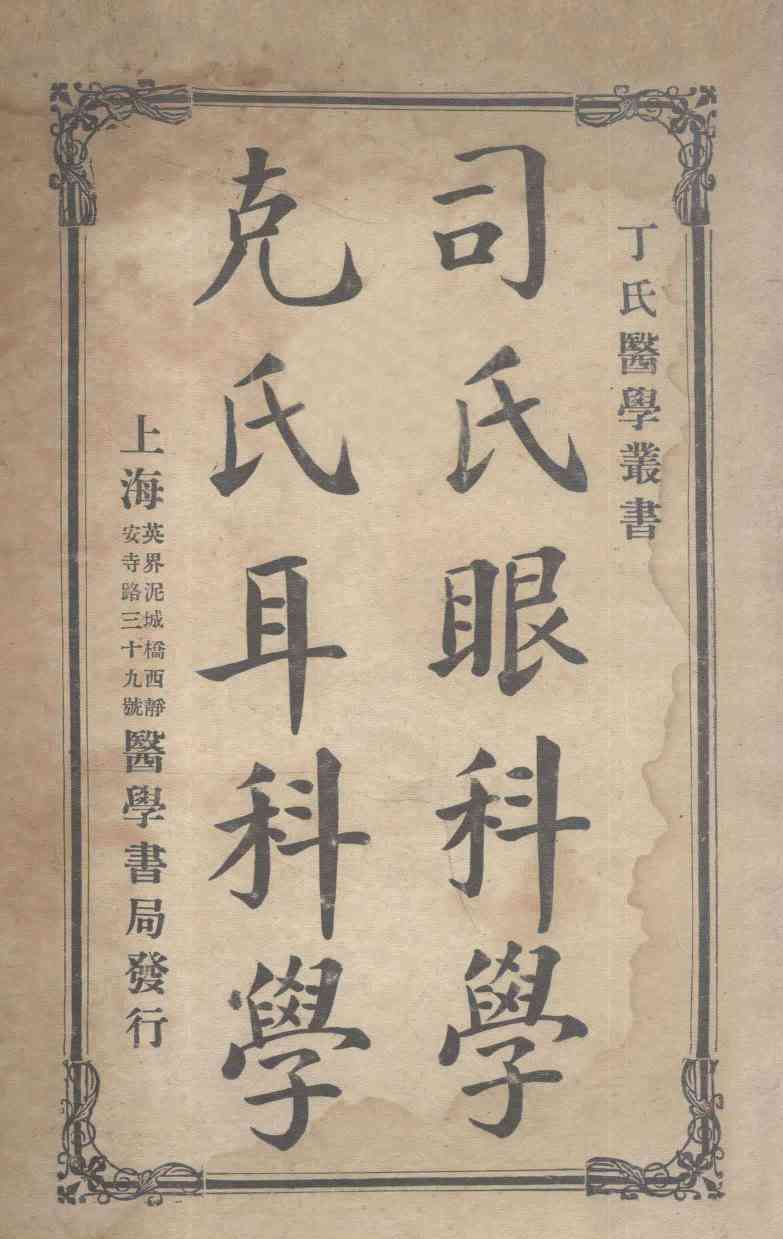 丁氏醫學叢書
司氏眼科學
克氏耳科學
上海英界泥城橋西靜安寺路三十九號醫學書局發行